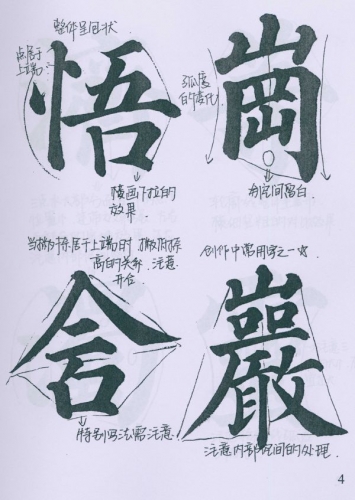 整体呈包状
点居于
上端
悟
竖画下拉的
效果.
崗
弧度
的变化
制空间留白
当撇捺居于上端时 撇低捺
高的关系.注意
开合
舍
特别写法需注意
创作中常用字之一
巖
注意内部空间的处理.
4